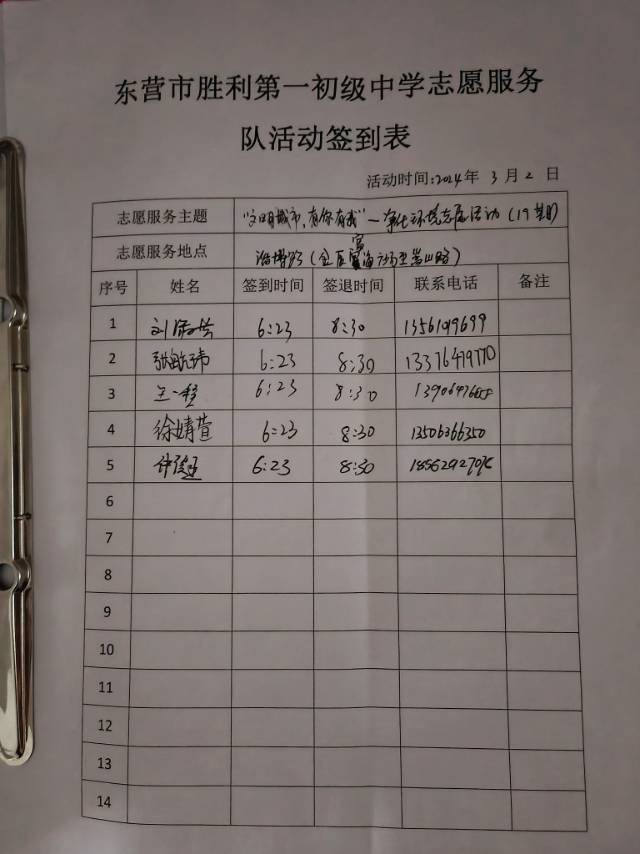 东营市胜利第一初级中学志愿服务
队活动签到表
活动时间:2024年 3 月 2 日
志愿服务主题 "文明城市,有你有我"—净化环境志愿活动(19期)
志愿服务地点
序号 姓名 签到时间 签退时间 联系电话 备注
1 6:23 8:30
2 6:23 8:30 13376479770
3 王一程 6:23 8:30
4 徐婧萱 6:23 8:30 13506366350
5 6:23 8:30
6
7
8
9
10
11
12
13
14